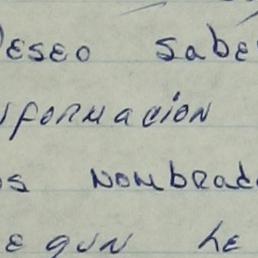 Deseo sabe
nformacion
os nombrad
egun he